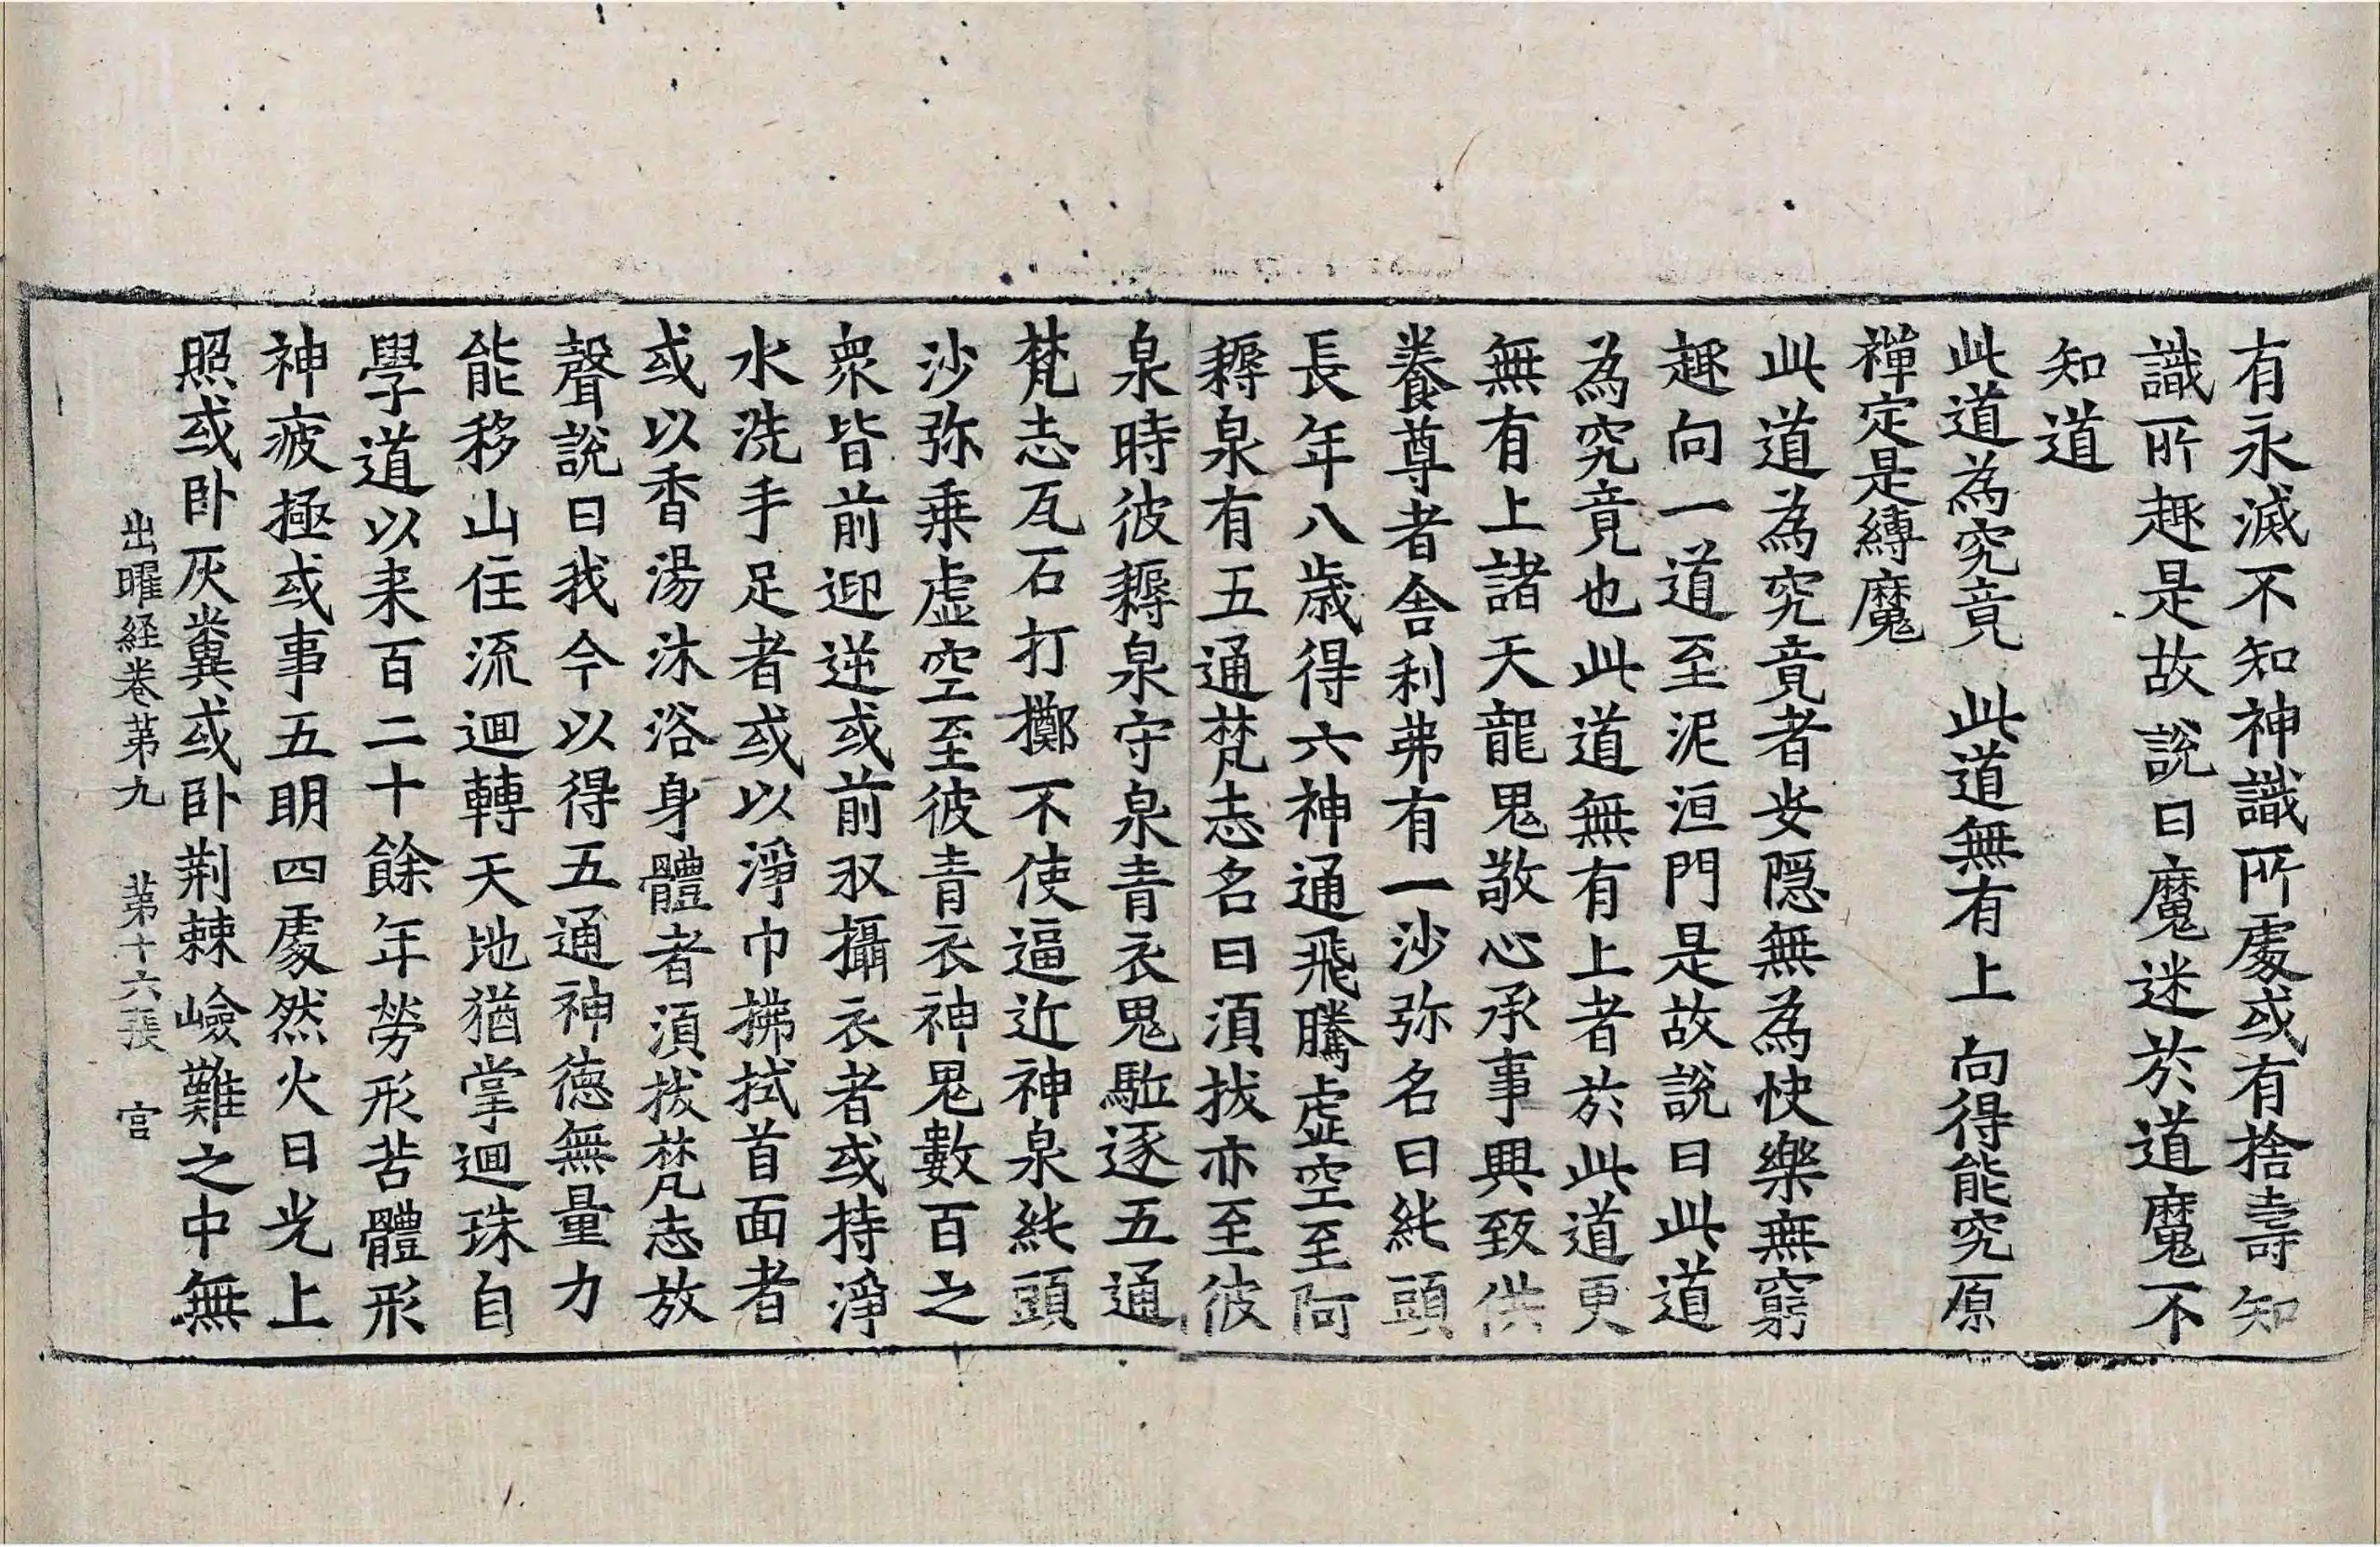 有永滅不知神識所處或有捨壽知
識所趣是故說曰魔迷於道魔不
知道
此道為究竟　此道無有上　向得能究原
禪定是縛魔
此道為究竟者安隱無為快樂無窮
趣向一道至泥洹門是故說曰此道
為究竟也此道無有上者於此道更
無有上諸天龍鬼敬心承事興致供
養尊者舍利弗有一沙弥名曰紪頭
長年八歲得六神通飛騰虛空至阿
耨泉有五通梵志名曰湏拔亦至彼
泉時彼耨泉守泉青衣鬼駈逐五通
梵志瓦石打擲不使逼近神泉紪頭
沙弥乘虛空至彼青衣神鬼數百之
衆皆前迎逆或前収攝衣者或持淨
水洗手足者或以淨巾拂拭首面者
或以香湯沐浴身體者湏拔梵志放
聲說曰我今以得五通神德無量力
能移山住流迴轉天地猶掌迴珠自
學道以来百二十餘年勞形苦體形
神疲極或事五明四處然火日光上
照或卧灰糞或卧荆棘嶮難之中無
出曜経卷苐九　苐十六張　官